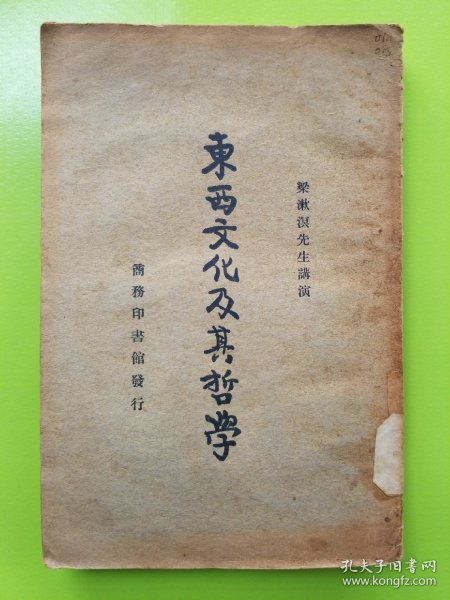 梁漱溟先生講演
東西文化及其哲學
商務印書館發行
孔夫子旧书网
www.kongfz.com